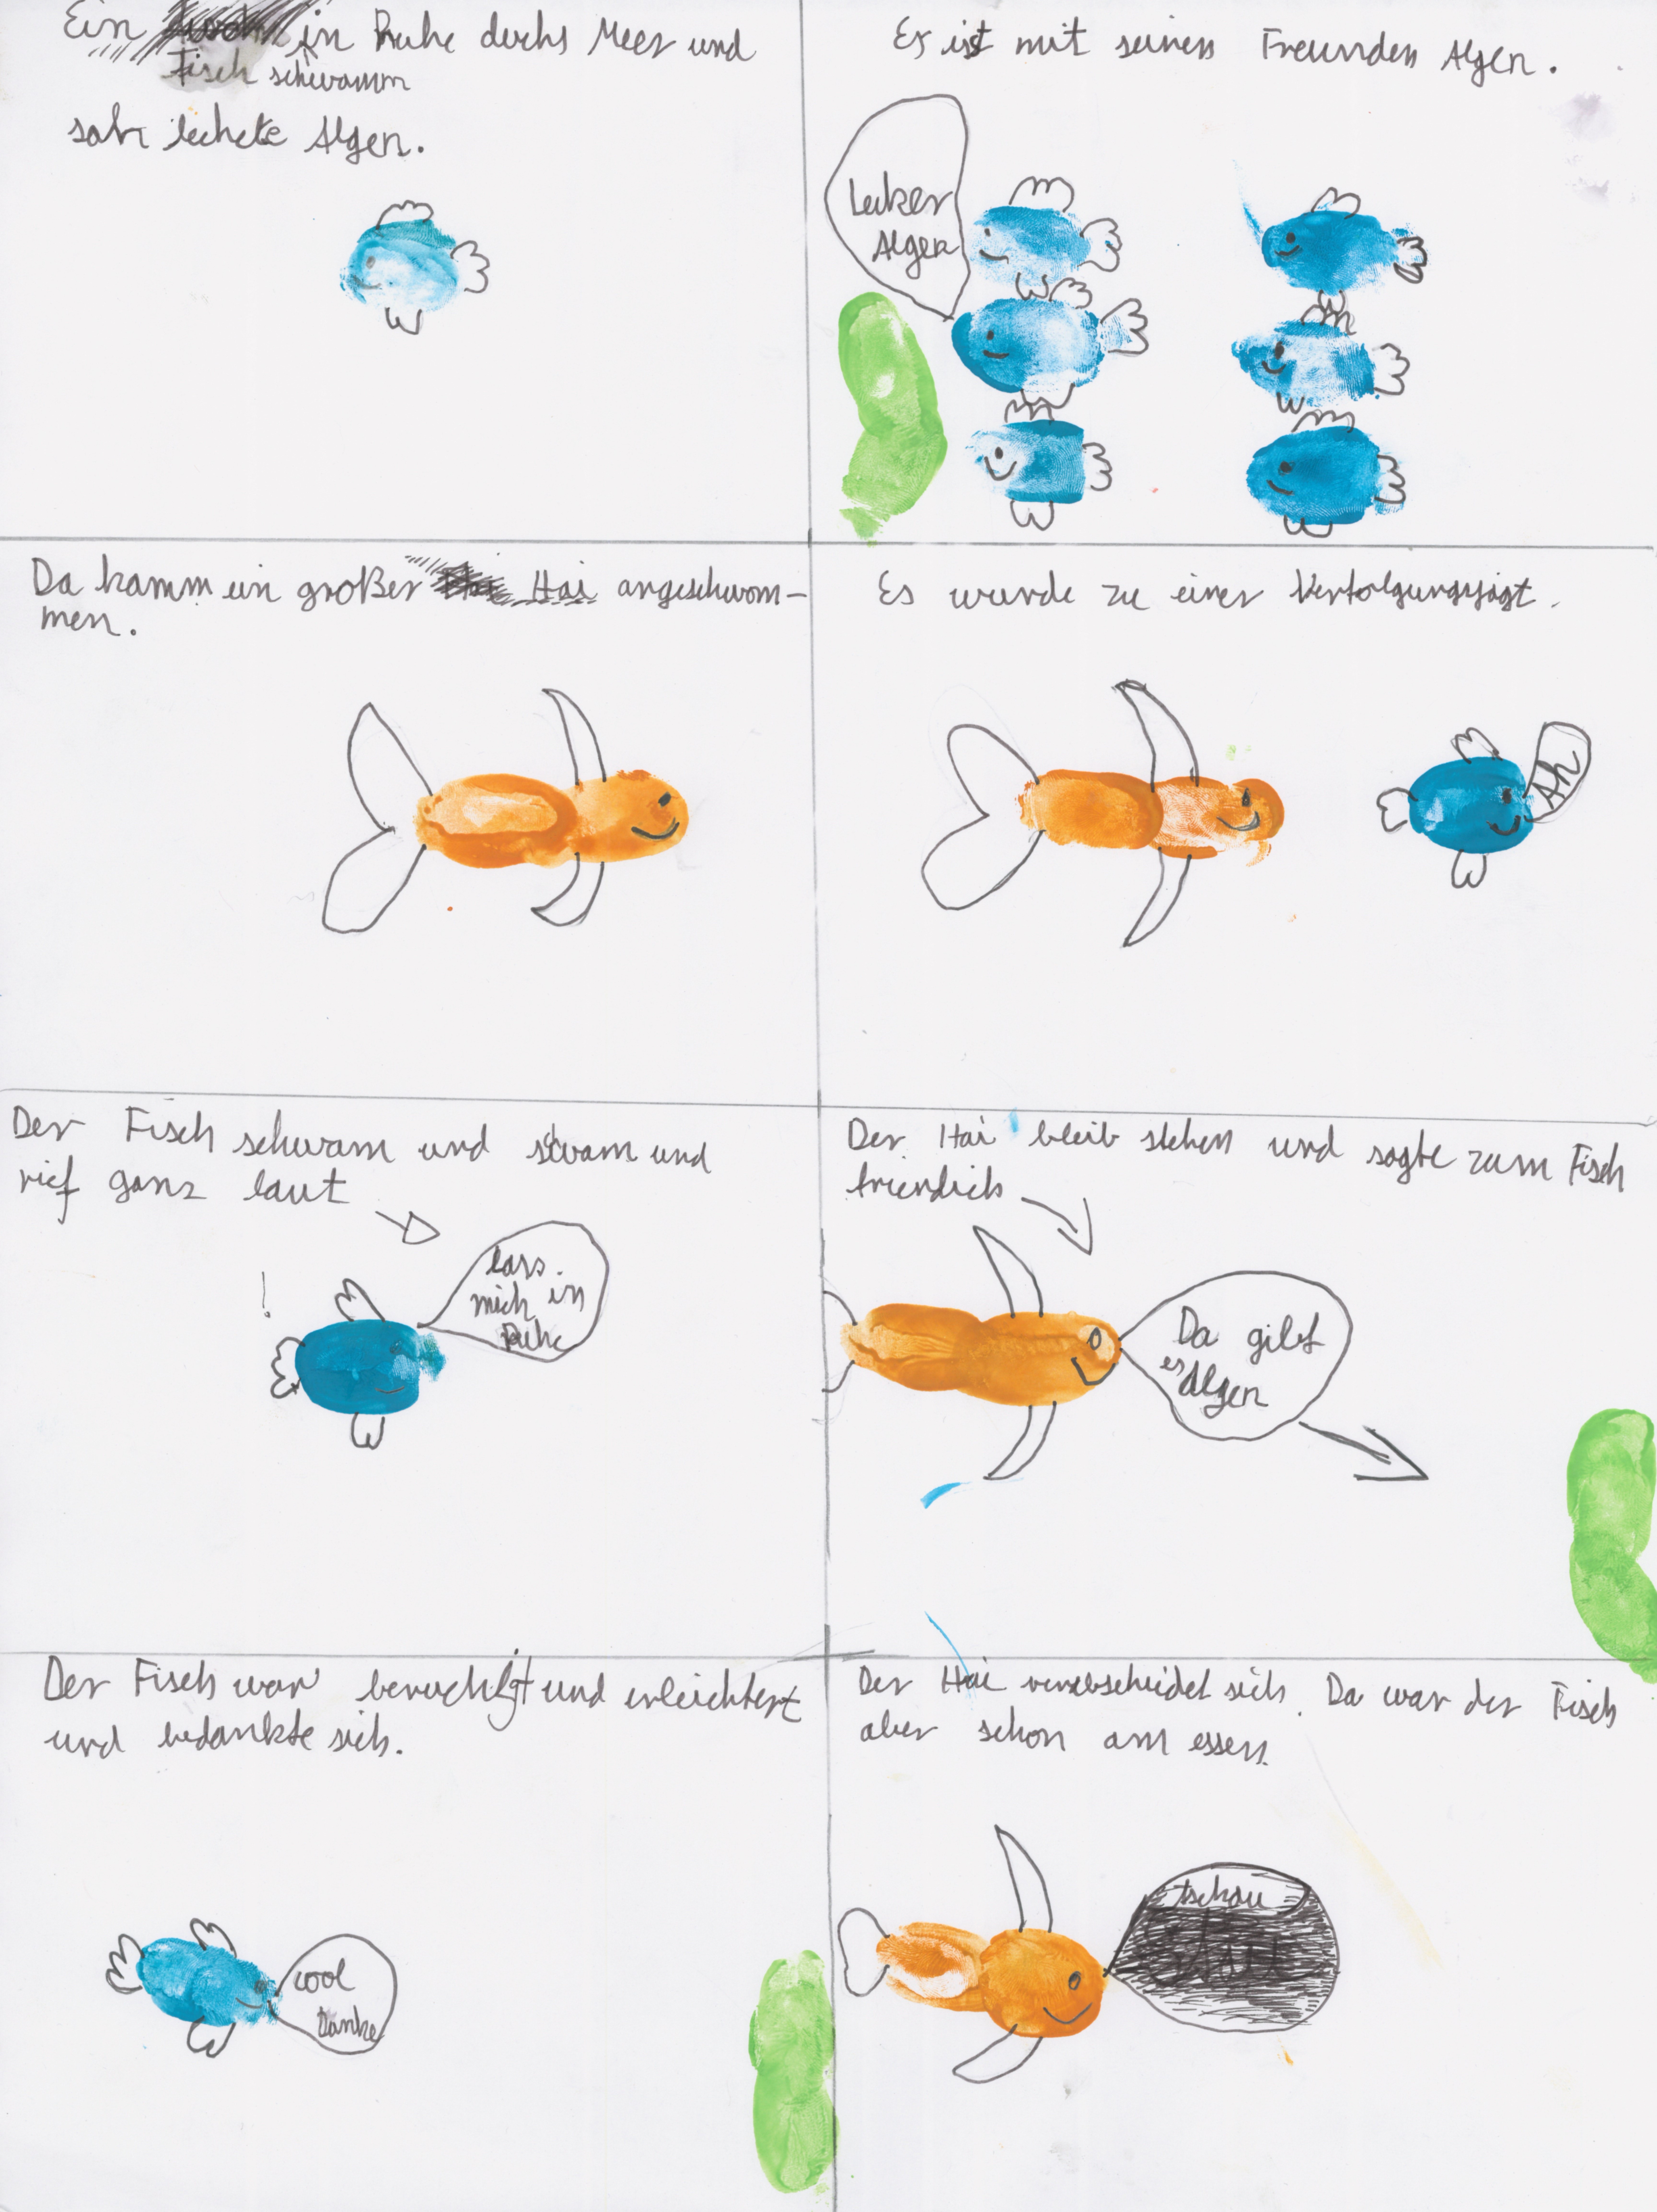 Ein in Ruhe durchs Meer und
Fisch schwamm
sah leckete Algen.
Er ist mit seinen Freunden Algen.
Leker
Algen
Da kamm ein großer Hai angeschwom-
men.
Es wurde zu einer Verfolgungsjagt.
Ah
Der Fisch schwam und swam und
rief ganz laut
!
lass
mich in
Ruhe
Der Hai bleib stehen und sagte zum Fisch
friendlich
Da gibt
es Algen
Der Fisch war beruchigt und erleichtert
und bedankte sich.
cool
Danke
Der Hai verabscheidet sich. Da war der Fisch
aber schon am essen.
tschau